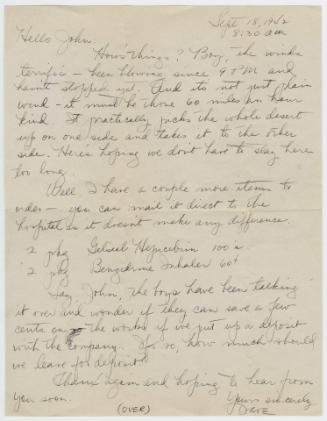 Sept 18, 1942
8:30 AM
Hello John,
How's things? Boy, the winds
terrific – been blowing since 9 PM and
hasn't stopped yet. And its not just plain
wind – it must be those 60 miles an hour
kind. It practically picks the whole desert
up on one side and takes it to the other
side. Here's hoping we don't have to stay here
too long.
Well I have a couple more items to
order – you can mail it direct to the
hospital as it doesn't make any difference.
2 pkg 100's
2 pkg Benzedrine Inhaler 60¢
Say, John, the boys have been talking
it over and wonder if they can save a few
cents on the works if we put up a deposit
with the company. If so, how much should
we leave for deposit?
Thanks again and hoping to hear from
you soon.
Yours sincerely,
Dave
(OVER)